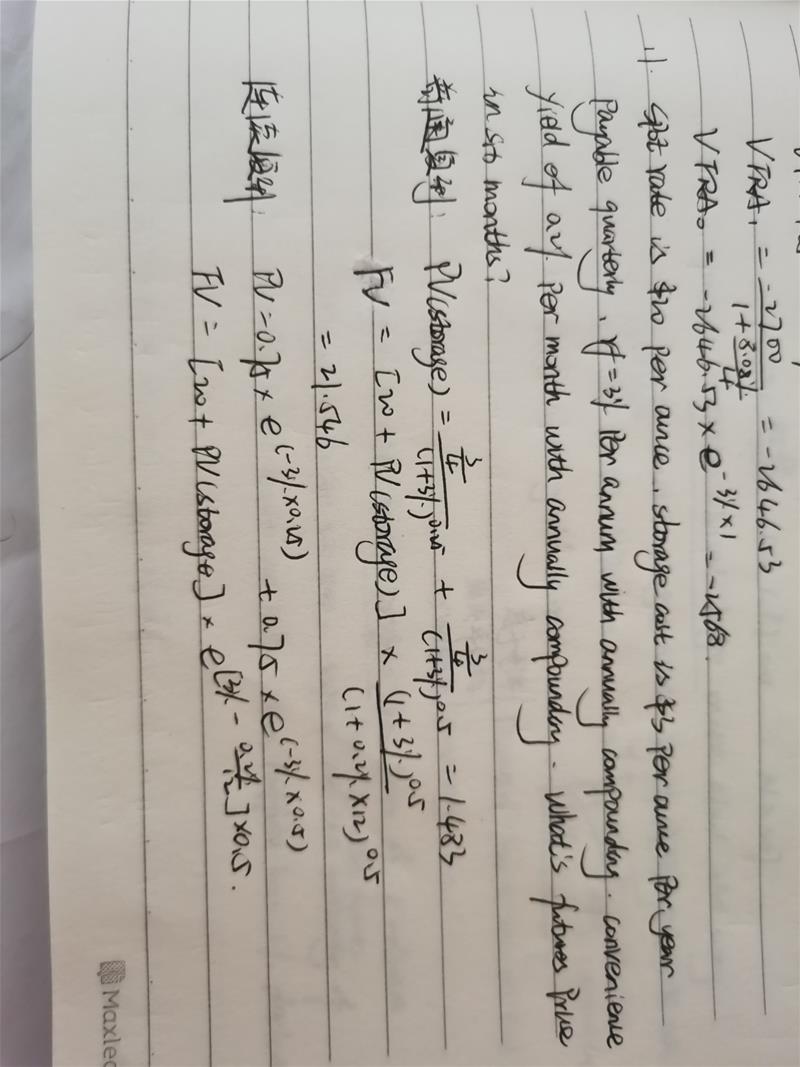 VFRA₁ = -2700 / (1 + 8.08%/4) = -2646.53
VFRA₀ = -2646.53 × e^(-3%×1) = -2568.
4). Spot rate is $20 per ounce, storage cost is $3 per ounce per year
payable quarterly, rf = 3% per annum with annually compounding. convenience
yield of 0.2% per month with annually compounding. What's futures price
in six months?
普通复利: PV(storage) = (3/4)/(1+3%)^0.25 + (3/4)/(1+3%)^0.5 = 1.483
FV = [20 + PV(storage)] × (1+3%)^0.5 / (1+0.2%×12)^0.5
= 21.546
连续复利: PV = 0.75 × e^(-3%×0.25) + 0.75 × e^(-3%×0.5)
FV = [20 + PV(storage)] × e^[3% - 0.2%/12]×0.5.
Maxlea